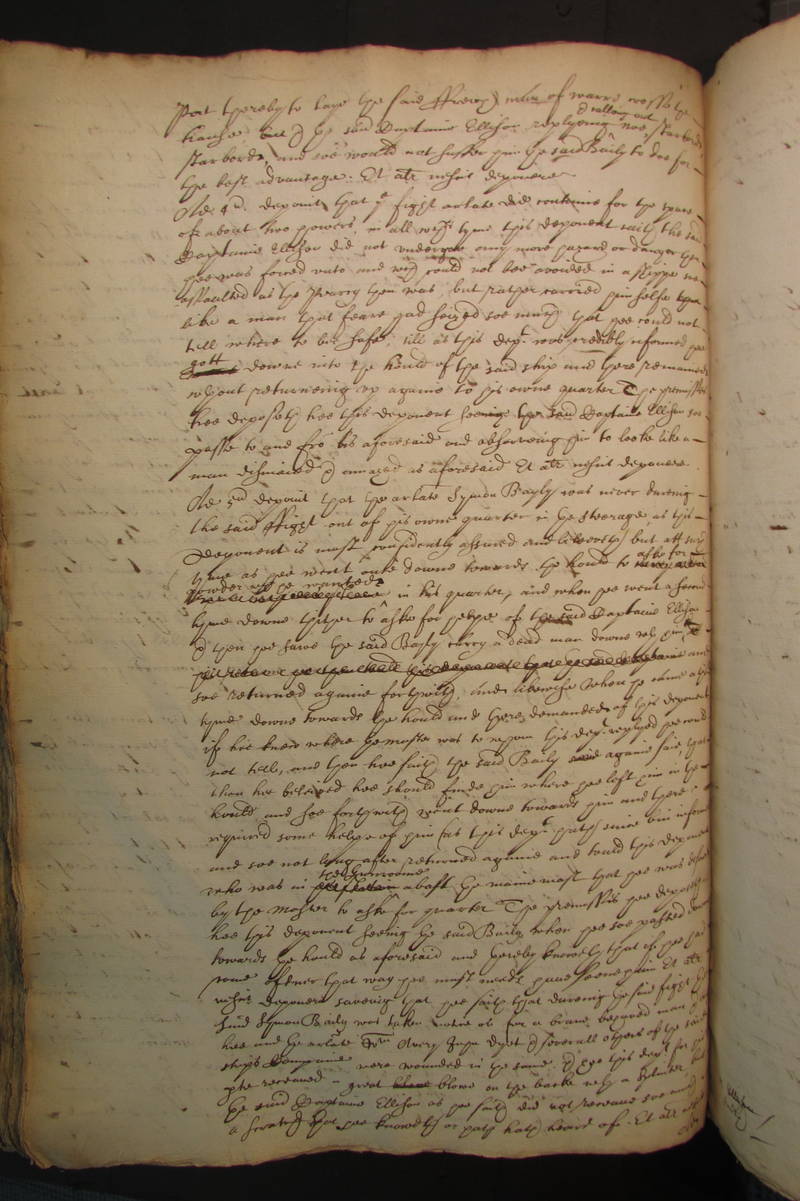 Port thereby to laye the said ffrench man of warre
the said Captaine Ellison replyeing & calling out noe, starbord
starbord, and soe would not suffer him the said Baily to doe for
the best advantage. Et aliter nescit deponere
Ad 4um deponit that the fight arlate did continue for the space
of about two howers, in all which tyme this deponent saith the said
Captaine Ellison did not undergoe any more hazard or danger then
hee was forced unto and which could not bee avoided in a shipp soe
assaulted as the Harry then was but rather carried him selfe
like a man that feare had seized soe much that hee could not
tell where to bee safe, till as this deponent was credibly informed hee
gott downe into the hould of the said ship and there remained
without returneing up againe to his owne quarter The premisses
hee deposeth hee this deponent seeing the said Captaine Ellison soe
passe to and fro as aforesaid and observing him to looke like a
man dismaied & amazed as aforesaid Et aliter nescit deponere.
Ad 5um deponit that the arlate Symon Bayly was never dureing
the said ffight out of his owne quarter in the steerage, as this
deponent is most confidently assured and beleeveth but att such
tyme as hee went once downe towards the hould to aske for
powder which he wanted in his quarter, and when hee went a second
tyme downe thither to aske for helpe of the said Captaine Ellison
& then hee sawe the said Bayly carry a dead man downe with him
and
soe returned againe forthwith, And likewise when he came a third
tyme downe towards the hould and there demanded of this deponent
if hee knew where the master was to whom this deponent replyed hee could
not tell, and then hee saith the said Baily againe said, that
then hee beleived hee should finde him where hee left him in the
hould and soe forthwith went downe towards him and there
required some helpe of him (as this deponent hath since bin informed
and soe not long after returned againe and tould this deponent
who was in the Gunroome abaft the maine mast that hee was desired
by the master to aske for quarter The premisses hee deposeth
hee this deponent seeing the said Baily when hee soe passed downe
towards the hould as aforesaid and thereby knoweth that if hee had
come oftner that way hee must needs have seene him Et aliter
nescit deponere saveing that hee saith that dureing the said fight the
said Symon Baily was taken notice of for a brave behaved man
hee and the arlate Avery John Dyet & severall others of the said
ships Companie were wounded in the same & hee this deponent for his
parte received a great blowe on the backe with a splinter, but
the said Captaine Ellison as hee saith did not receave soe much
a scratch that hee knoweth or hath heard of. Et aliter